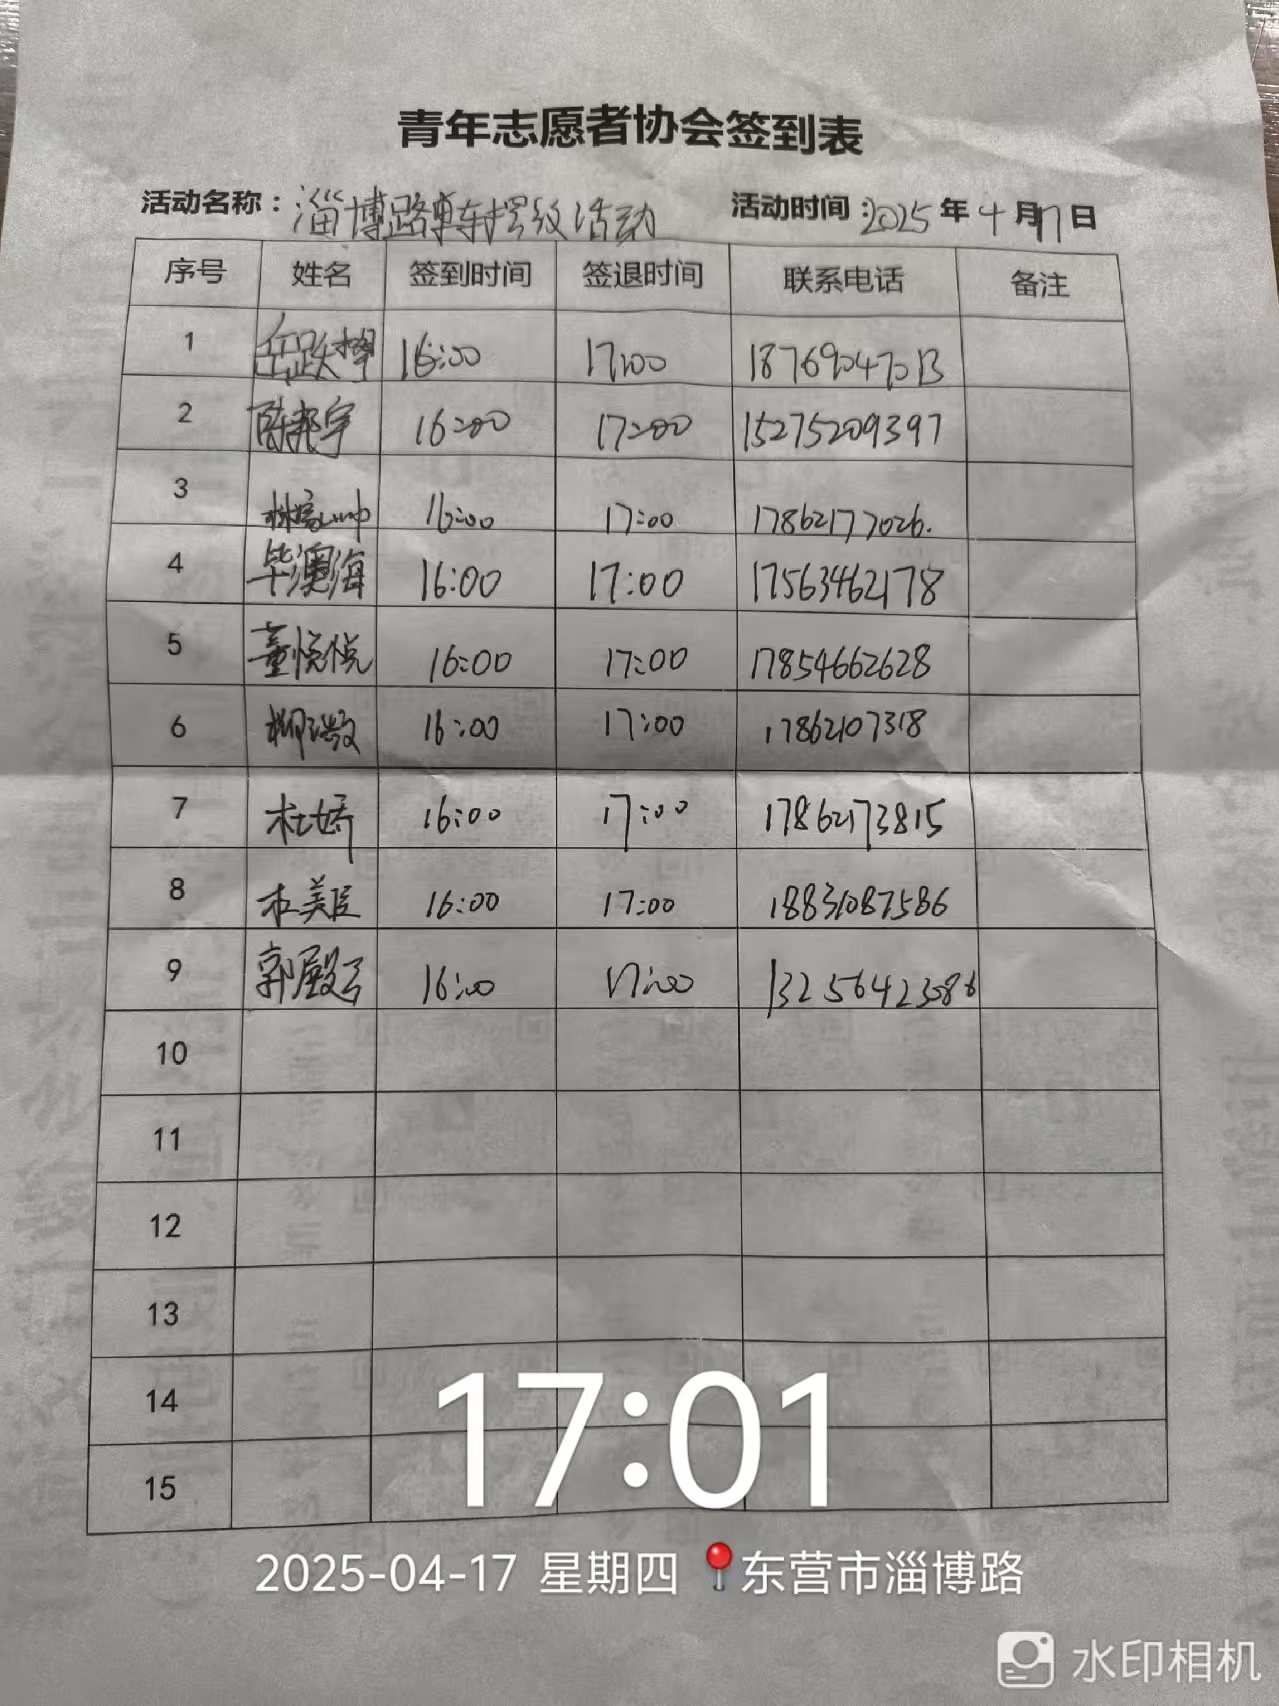 青年志愿者协会签到表
活动名称：淄博路单车摆放活动 活动时间：2025年4月17日
序号 姓名 签到时间 签退时间 联系电话 备注
1 岳跃 16:00 17:00 18769047013
2 陈邦宇 16:00 17:00 15275209397
3 林 16:00 17:00 17862177026.
4 毕澳海 16:00 17:00 17563462178
5 董悦悦 16:00 17:00 17854662628
6 柳 16:00 17:00 17862107318
7 杜娇 16:00 17:00 17862173815
8 杜美臣 16:00 17:00 18831087586
9 郭殿 16:00 17:00 13256423086
10
11
12
13
14
15
17:01
2025-04-17 星期四 东营市淄博路
水印相机